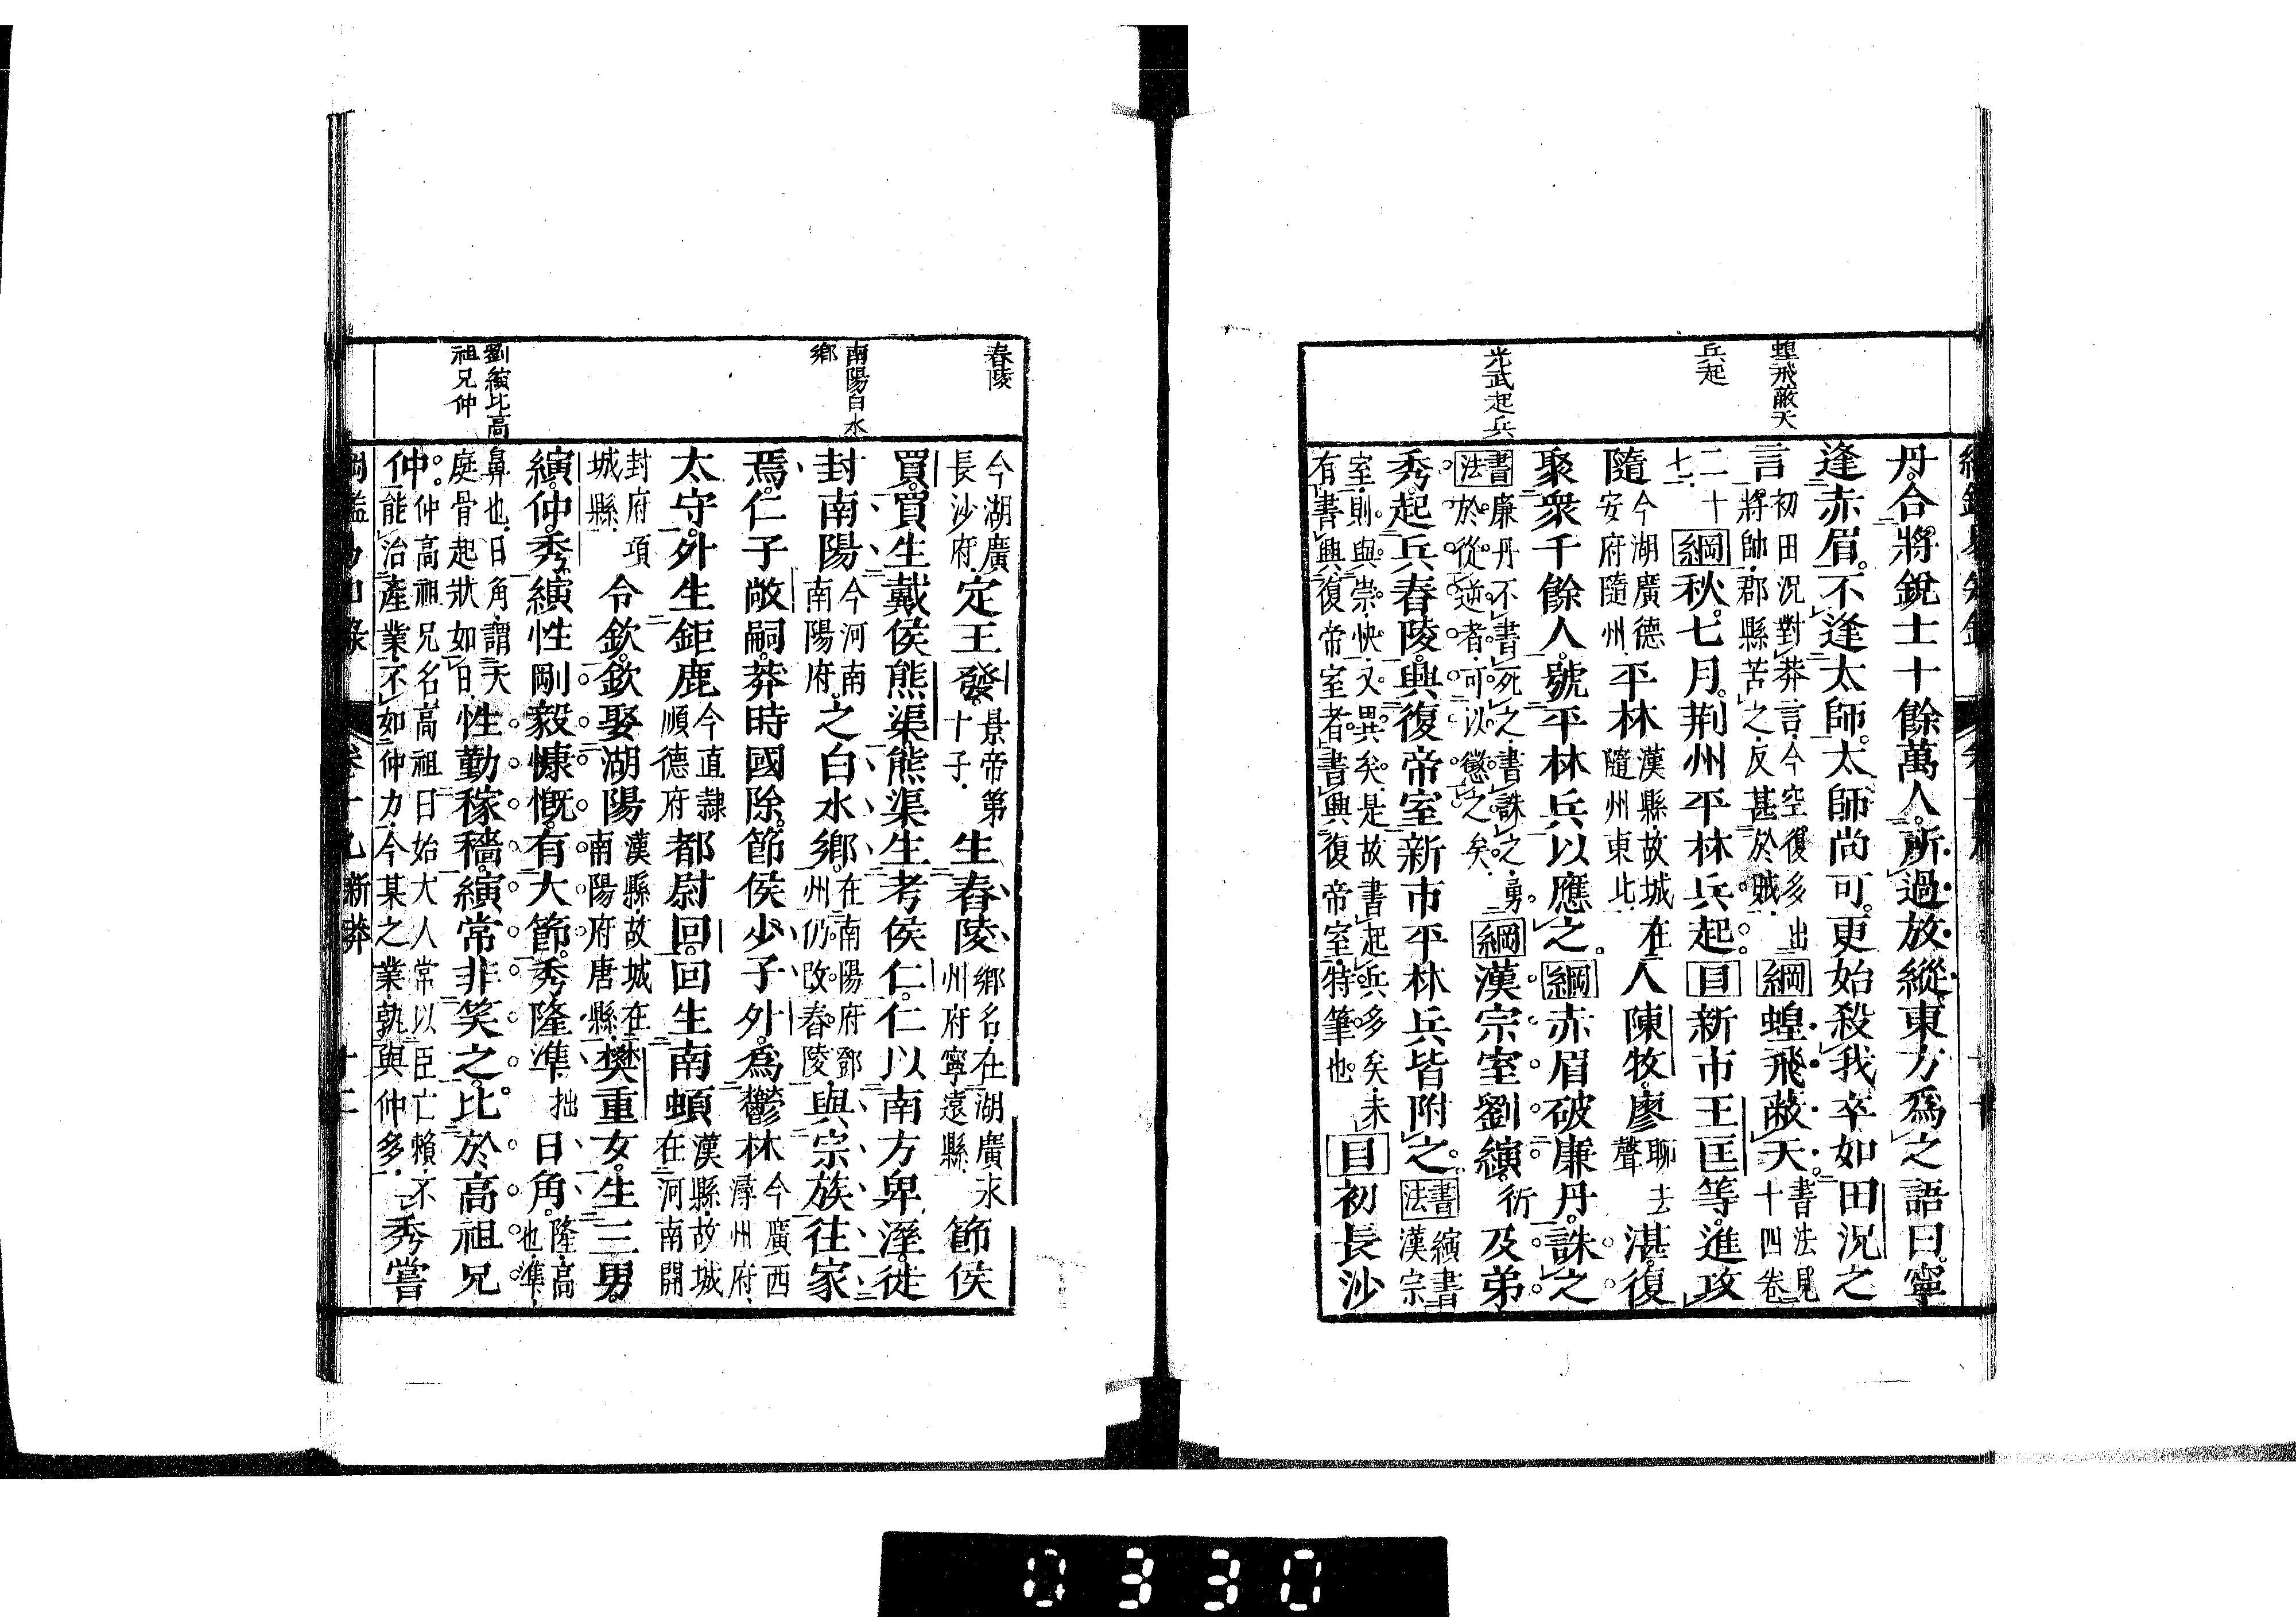 蝗飛蔽天
兵起
光武起兵
丹。合將銳士十餘萬人。所過放縱。東方爲之語曰。寧
逢赤眉。不逢太師。太師尚可。更始殺我。卒如田況之
言。初田況對莽言、今空復多出將帥、郡縣苦之、反甚於賊、綱蝗飛蔽天。書法見十四卷
二十十一、綱秋。七月。荆州平林兵起。目新市王匡等。進攻
隨今湖廣德安府隨州、平林漢縣、故城在隨州東北、人陳牧。廖聊去聲湛。復
聚衆千餘人。號平林兵以應之。綱赤眉破廉丹。誅之
書法廉丹不書死之、書誅之、勇於從逆者、可以懲之矣、綱漢宗室劉縯。衍及弟
秀。起兵舂陵。興復帝室新市平林兵皆附之。書法縯書漢宗
室、則與崇、快、又異矣、是故書起兵多矣、未有書興復帝室者、書興復帝室、特筆也。目初長沙
舂陵
南陽白水
鄉
劉縯比高
祖兄仲
今湖廣長沙府、定王發。景帝第十子、生舂陵鄉名、在湖廣永州府寧遠縣節侯
買。買生戴侯熊渠。熊渠生考侯仁。仁以南方卑溼。徙
封南陽今河南南陽府、之白水鄉。在南陽府鄧州、仍改舂陵與宗族往家
焉。仁子敞嗣。莽時國除。節侯少子外。爲鬱林今廣西潯州府、
太守。外生鉅鹿今直隷順德府都尉回。回生南頓漢縣、故城在河南開
封府項城縣令欽。欽娶湖陽漢縣、故城在南陽府唐縣、樊重女。生三男。
縯。仲。秀。縯性剛毅慷慨。有大節。秀隆準。拙日角。隆、高也、準、
鼻也、日角、謂天庭骨起狀如日、性勤稼穡。縯常非笑之。比於高祖兄
仲。仲高祖兄名、高祖曰始大人常以臣亡賴、不能治產業、不如仲力、今某之業、孰與仲多、秀嘗
卷十九 新莽